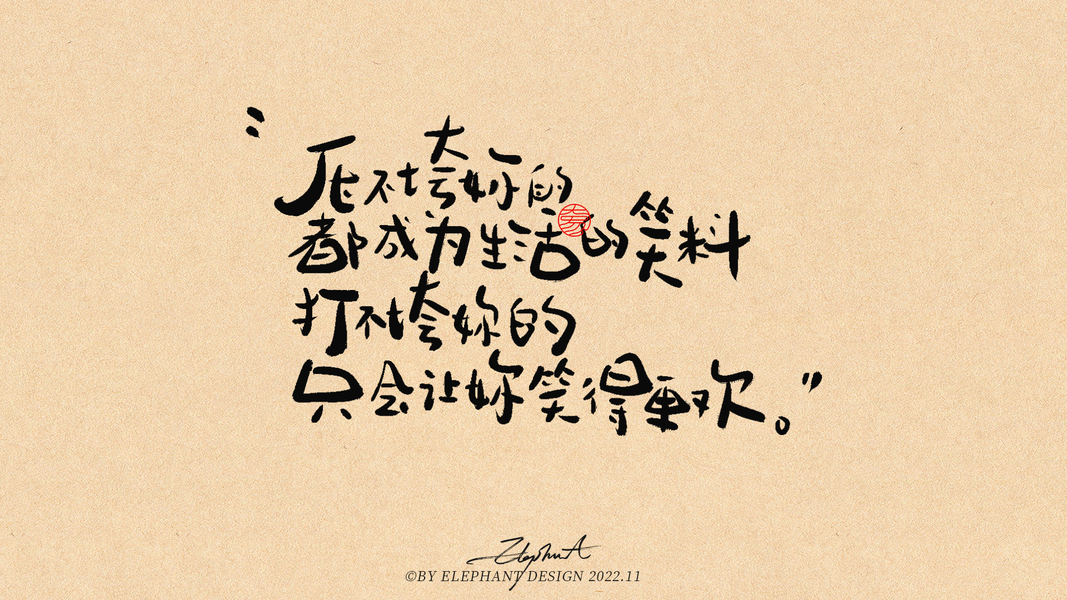 "压不垮妳的
都成为生活的笑料
打不垮妳的
只会让妳笑得更欢。"
©BY ELEPHANT DESIGN 2022.11